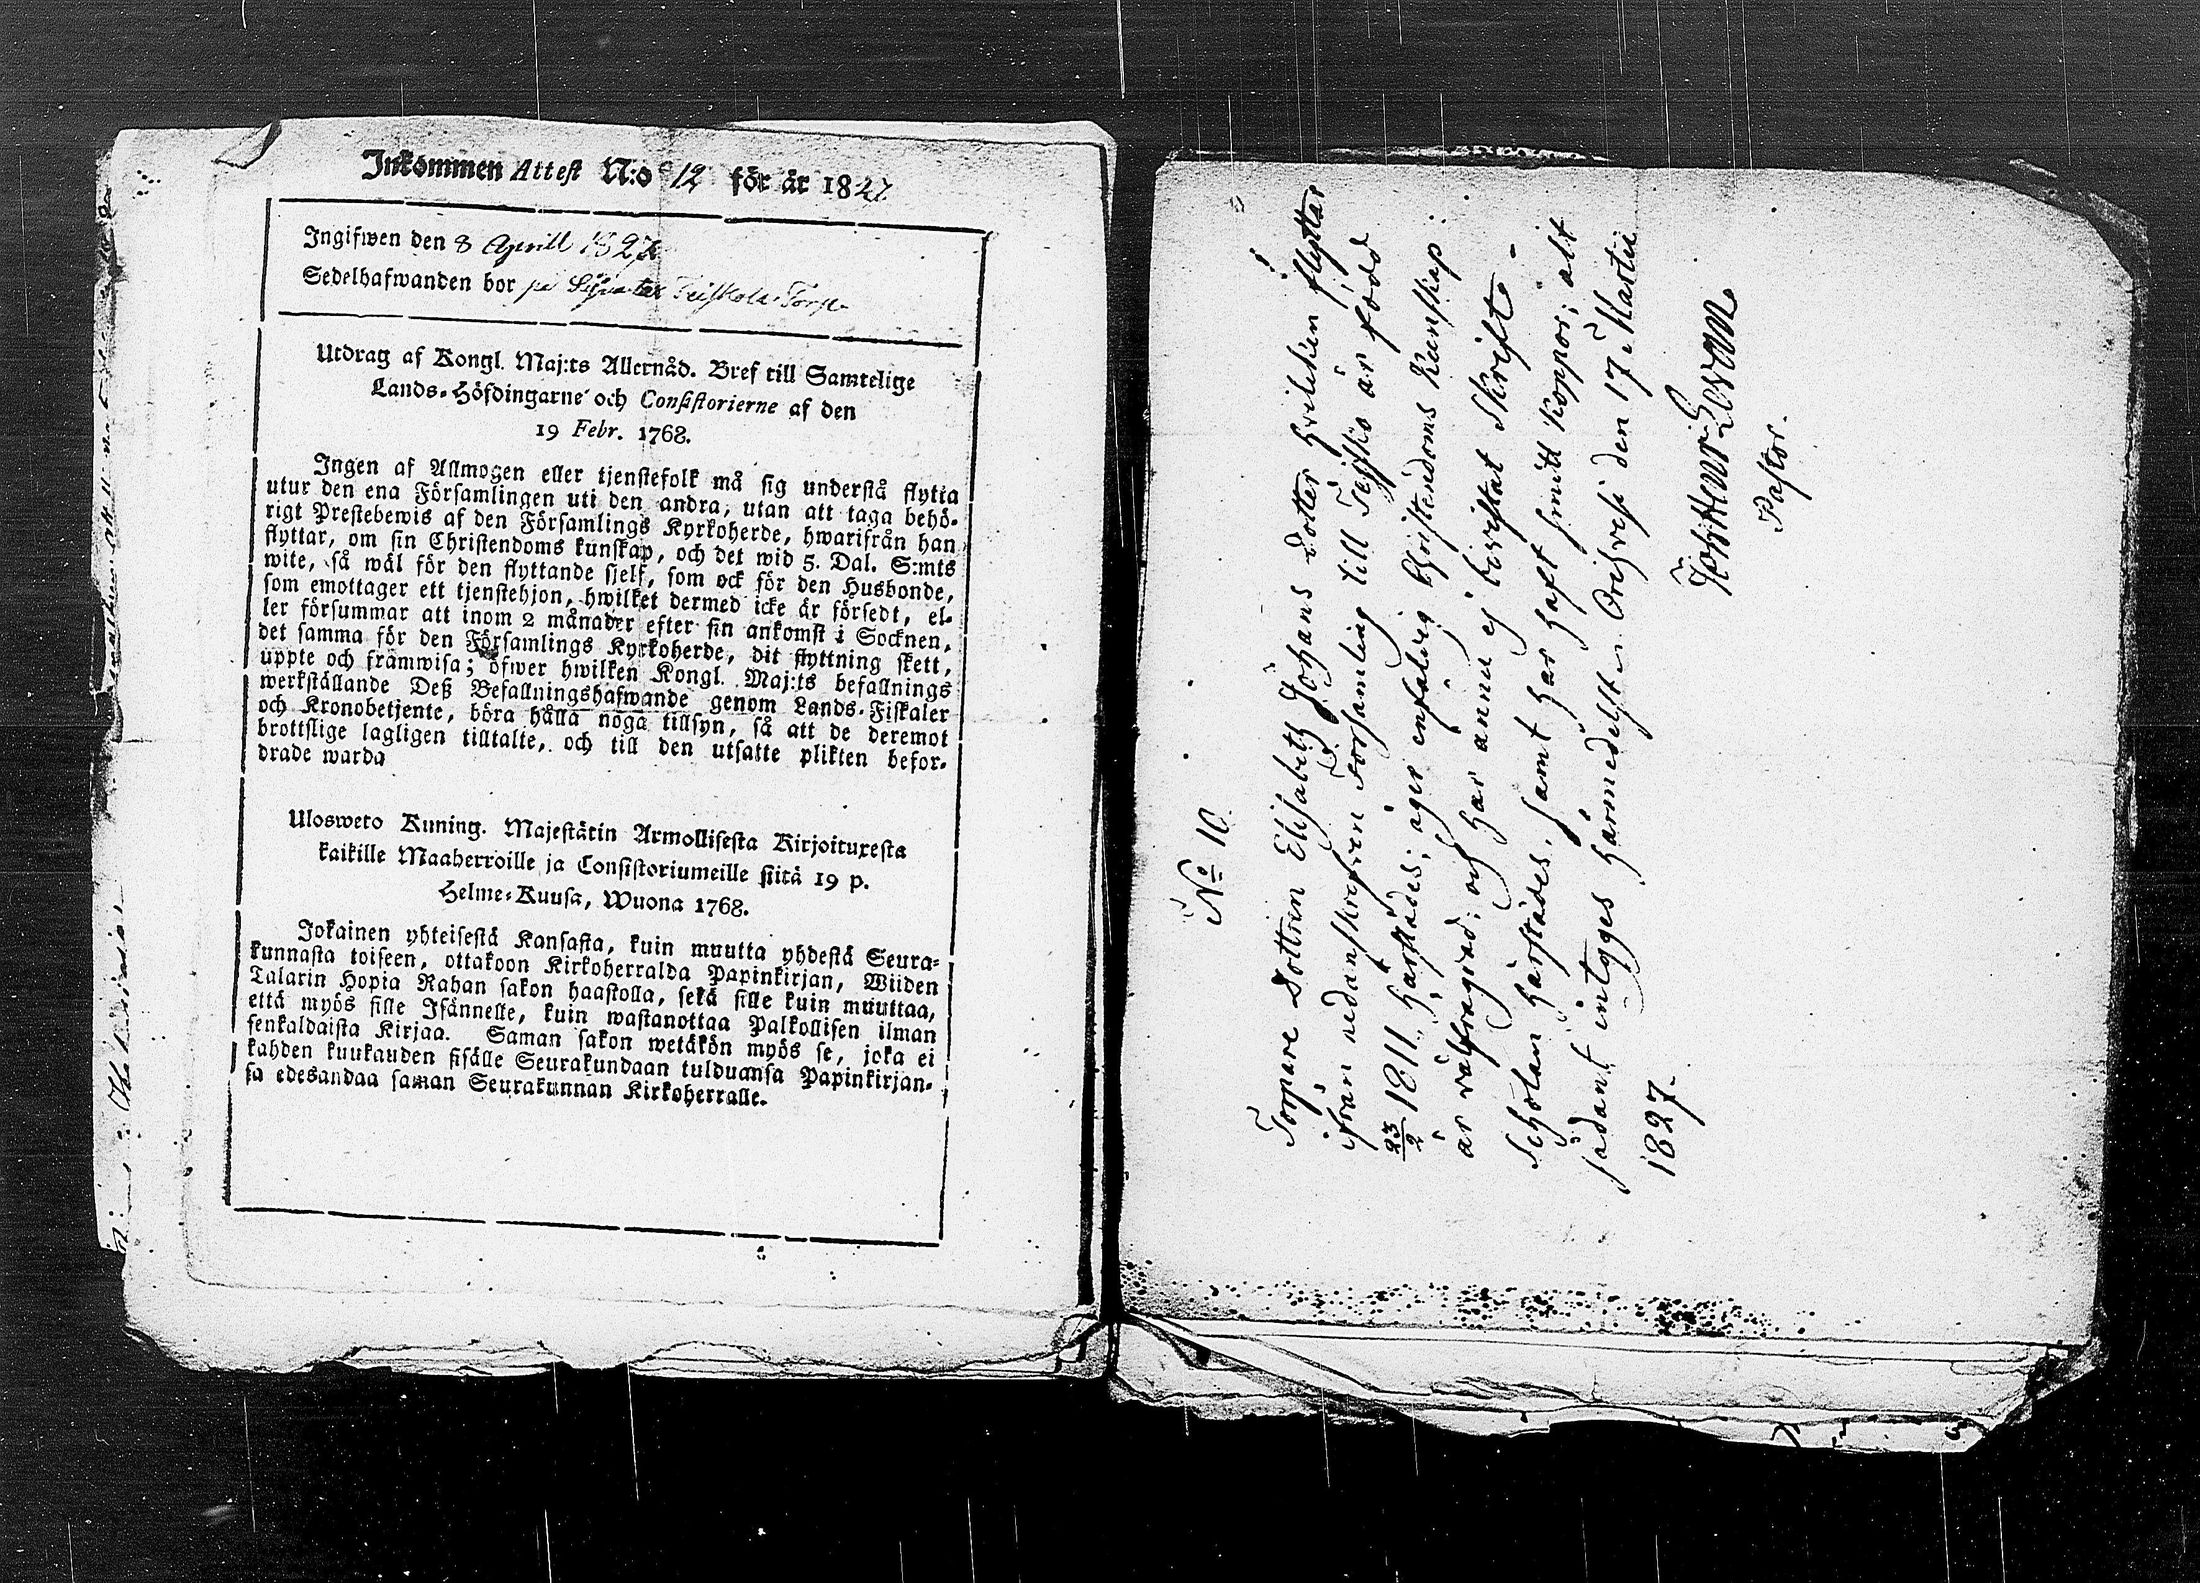 Inkommen Attest N:o 12 för år 1827.
Ingifwen den 8 Aprill 1827
Sedelhafwanden bor på Torp
Utdrag af Kongl. Maj:ts Allernåd. Bref till Samtelige
Lands-Höfdingarne och Consistorierne af den
19 Febr. 1768.
Ingen af Allmogen eller tjenstefolk må sig understå flytta
utur den ena Församlingen uti den andra, utan att taga behö-
rigt Prestebewis af den Församlings Kyrkoherde, hwarifrån han
flyttar, om sin Christendoms kunskap, och det wid 5. Dal. S:mts
wite, så wäl för den flyttande sjelf, som ock för den Husbonde,
som emottager ett tjenstehjon, hwilket dermed icke är försedt, el-
ler försummar att inom 2 månader efter sin ankomst i Socknen,
det samma för den Församlings Kyrkoherde, dit flyttning skett,
uppte och framwisa; öfwer hwilken Kongl. Maj:ts befallnings
werkställande Deß Befallningshafwande genom Lands-Fiskaler
och Kronobetjente, böra hålla noga tillsyn, så att de deremot
brottslige lagligen tilltalte, och till den utsatte plikten befor-
drade warda
Ulosweto Kuning. Majestätin Armollisesta Kirjoituxesta
kaikille Maaherroille ja Consistoriumeille siitä 19 p.
Helme-Kuusa, Wuona 1768.
Jokainen yhteisestä Kansasta, kuin muutta yhdestä Seura-
kunnasta toiseen, ottakoon Kirkoherralda Papinkirjan, Wiiden
Talarin Hopia Rahan sakon haastolla, sekä sille kuin muuttaa,
että myös sille Isännelle, kuin wastanottaa Palkollisen ilman
senkaldaista Kirjaa. Saman sakon wetäkön myös se, joka ei
kahden kuukauden sisälle Seurakundaan tulduansa Papinkirjan-
sa edesandaa saman Seurakunnan Kirkoherralle.
No 10
Torpare Dottren Elisabeth Johans dotter hvilken flyttar
ifrån nedanskrefven Församling till Teisko är född
23/2 1811, härstädes; äger enfaldig Christendoms Kunskap:
är välfrägdad; och har ännu ej bevistat Skrift-
Scholan härstädes, samt har haft smitt Koppor; allt
sådant intyges härmedelst. Orihvesi den 17 Martii
1827.
Joh Henr
Pastor.